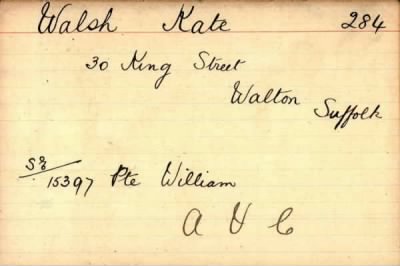 Walsh Kate 284
30 King Street
Walton Suffolk
SE/15397 Pte William
A V C